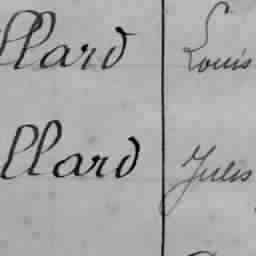 llard Louis
llard Jules